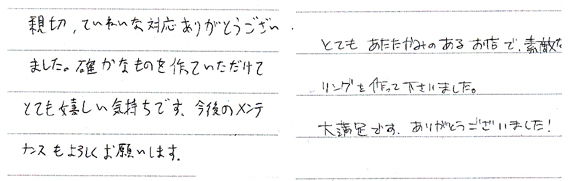 親切、ていねいな対応ありがとうござい
ました。確かなものを作っていただけて
とても嬉しい気持ちです。今後のメンテ
ナンスもよろしくお願いします。
とても あたたかみのある お店で、素敵な
リングを作って下さいました。
大満足です。ありがとうございました!